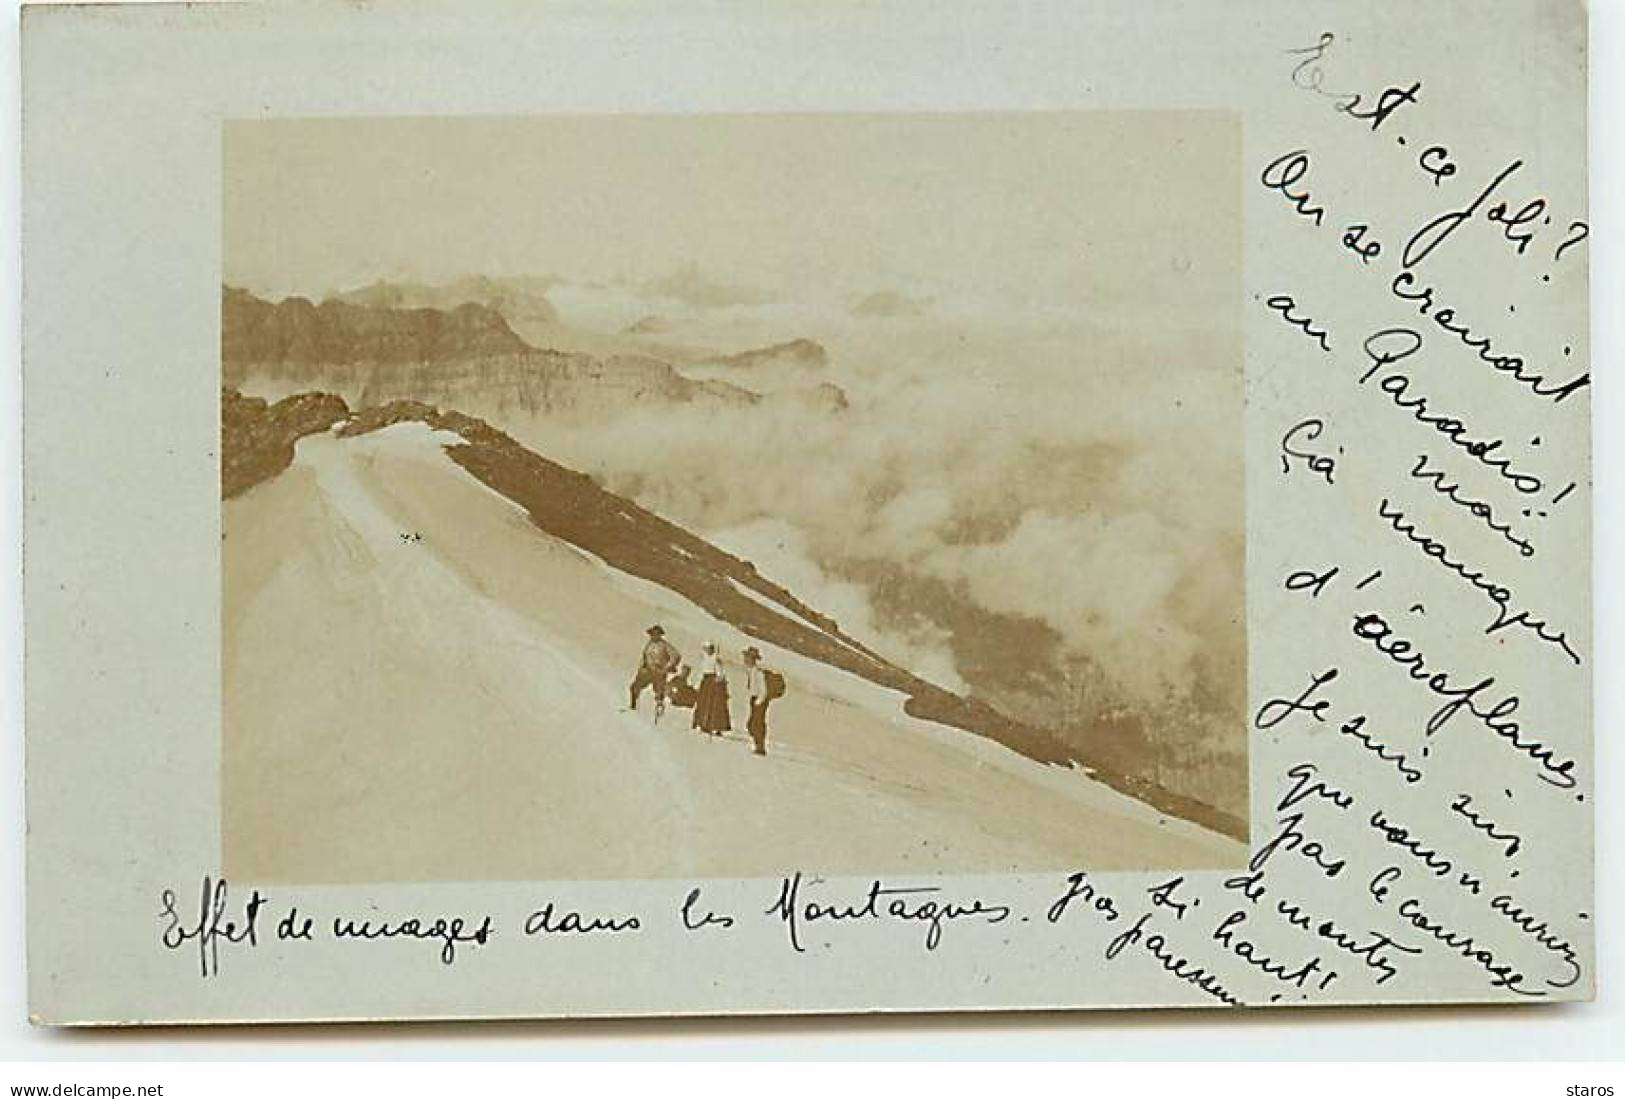 Est-ce joli?
On se croirait
au Paradis!
mais
Çà manque
d'aéroplanes.
Je suis sûr
que vous n'auriez
pas le courage
de monter
si haut!
gros
paresseux!
Effet de nuages dans les Montagnes.
www.delcampe.net
staros